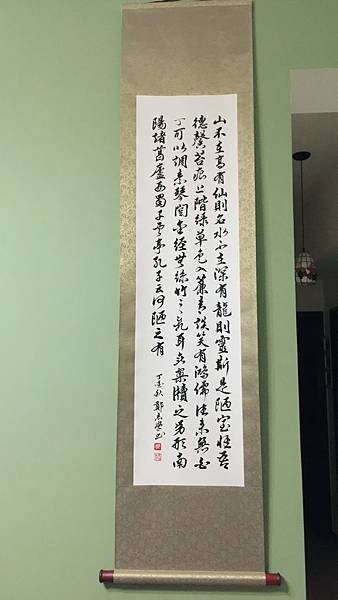 山不在高有仙則名水不在深有龍則靈斯是陋室惟吾
德馨苔痕上階綠草色入簾青談笑有鴻儒往來無白
丁可以調素琴閱金經無絲竹之亂耳無案牘之勞形南
陽諸葛廬西蜀子雲亭孔子云何陋之有
丁亥秋 鄭